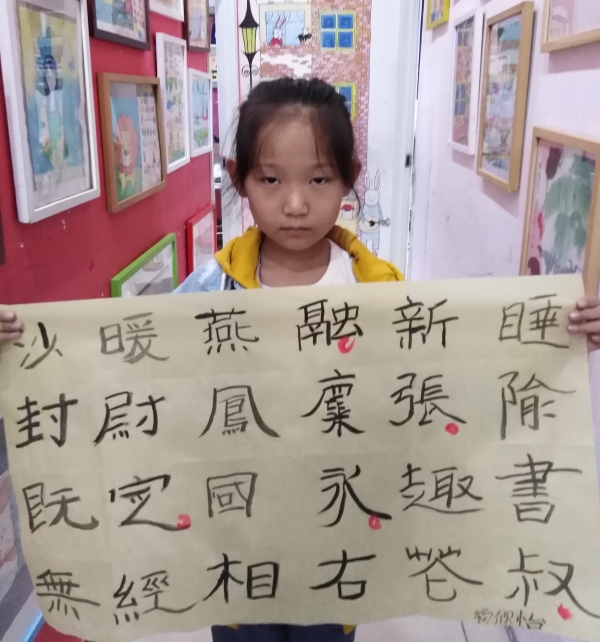 睡隃書叔
新張趣
融永右
燕鳳國相
暖尉定經
沙封既無
怡